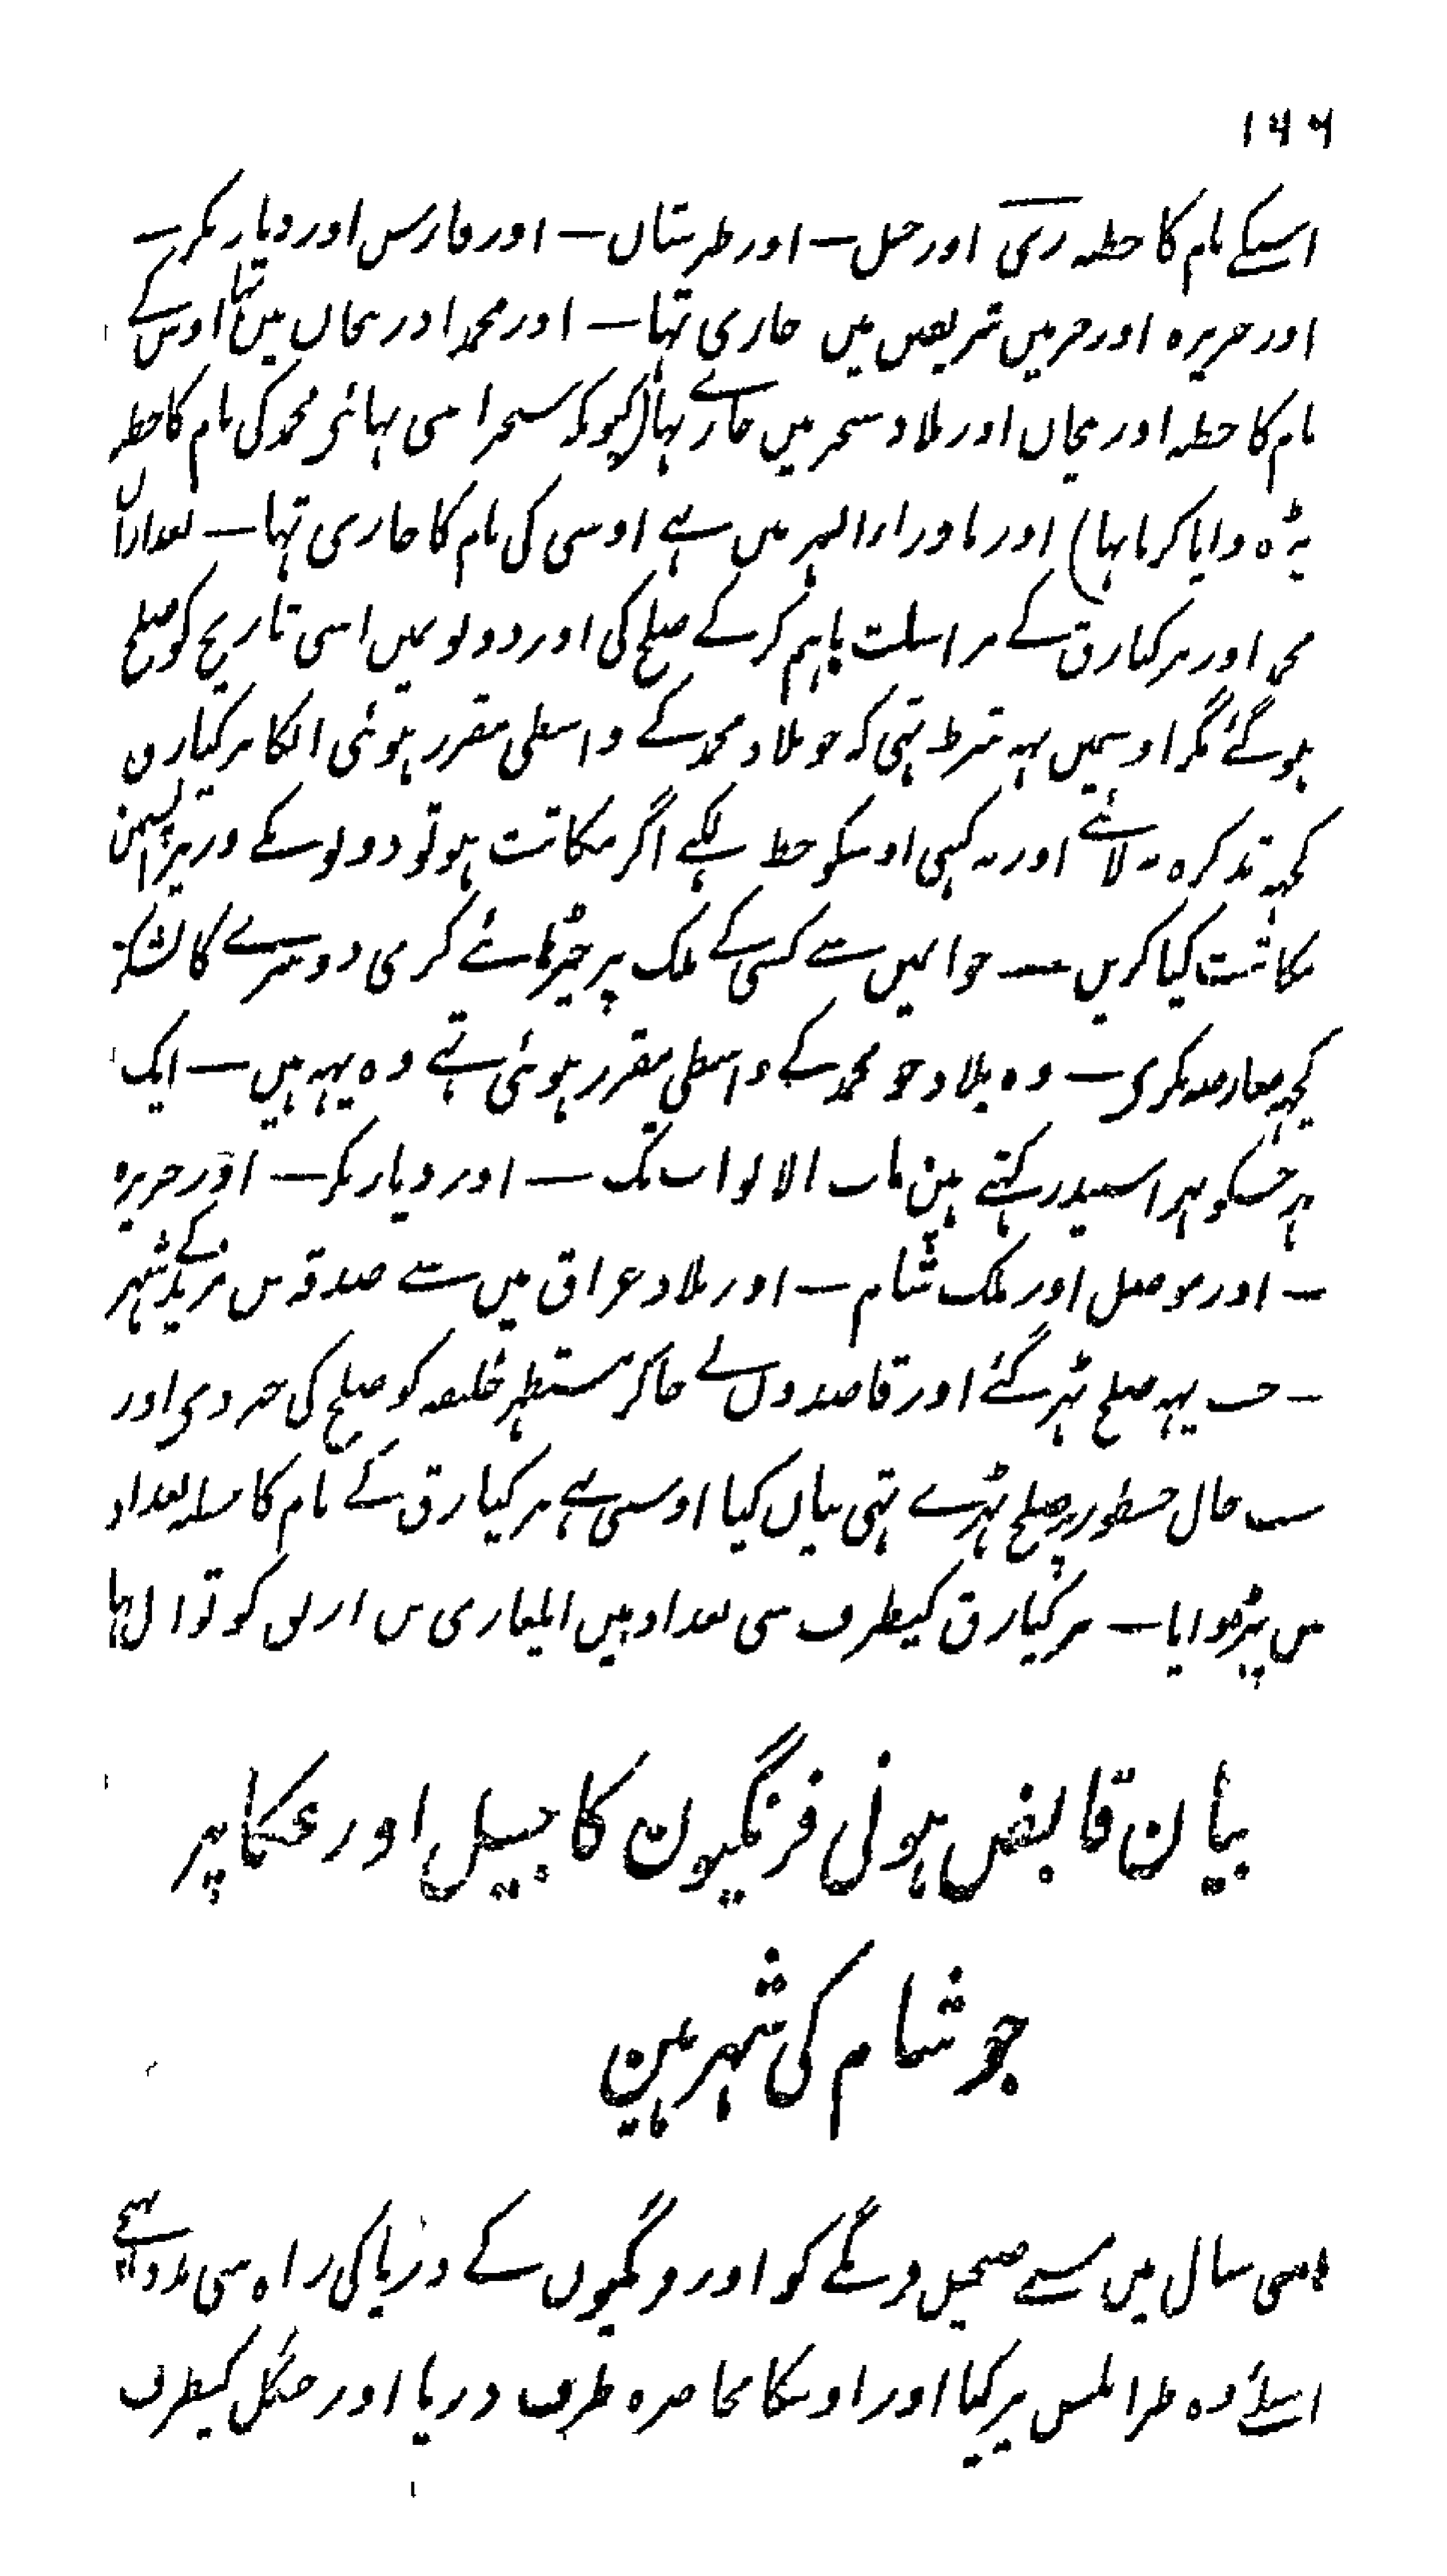 ۱۶۶
اسکے نام کا خطبہ ری اور جبل — اور طبرستان — اور فارس اور دیار بکر —
اور جزیرہ اور حرمین شریفین میں جاری تہا — اور محمد اذربیجان میں تہا اوس کے
نام کا خطبہ اذربیجان اور بلاد سنجر میں جارے تہا (کیونکہ سنجر اپنی بہائی محمد کی نام کا خطبہ
پڑہ وایا کرتا تہا) اور ماوراء النہر میں بہے اوسی کی نام کا جاری تہا — بعد ازاں
محمد اور برکیارق کے مراسلت باہم کرکے صلح کی اور دونو نمیں اسی تاریخ کو صلح
ہوگئے مگر اوسمیں یہہ شرط تہی کہ جو بلاد محمد کے واسطی مقرر ہوئی انکا برکیارق
کچہہ تذکرہ نہ لائے اور نہ کبہی اوسکو خط لکہے اگر مکاتبت ہو تو دونو کے وزیر آپسمین
مکاتبت کیا کریں — جو انمیں سے کسی کے ملک پر چڑہائے کری دوسرے کا لشکر
کچہہ معارضہ نکری — وہ بلاد جو محمد کے واسطی مقرر ہوئی تہے وہ یہہ ہیں — ایک
نہر جسکو نہر اسبیدرز کہتے ہین باب الابواب تک — اور دیار بکر — اور جزیرہ
— اور موصل اور ملک شام — اور بلاد عراق میں سے صدقہ بن مزید کے شہر
— جب یہہ صلح ٹہر گئے اور قاصدوں نے جاکر مستظہر خلیفہ کو صلح کی خبر دی اور
سب حال جسطور پر صلح ٹہرے تہی بیان کیا اوسی بہے برکیارق کے نام کا خطبہ بغداد
میں پڑہوایا — برکیارق کیطرف سی بغداد میں ایلغازی بن ارتق کوتوال تہا
بیان قابض ہونی فرنگیون کا جبیل اور عکا پر
جو شام کی شہر ہین
اسی سال میں صنجیل فرنگے کو اور فرنگیوں کے دریا کی راہ سی مدد پہنچے
اسلئے وہ طرابلس پر گیا اور اوسکا محاصرہ طرف دریا اور جنگل کیطرف